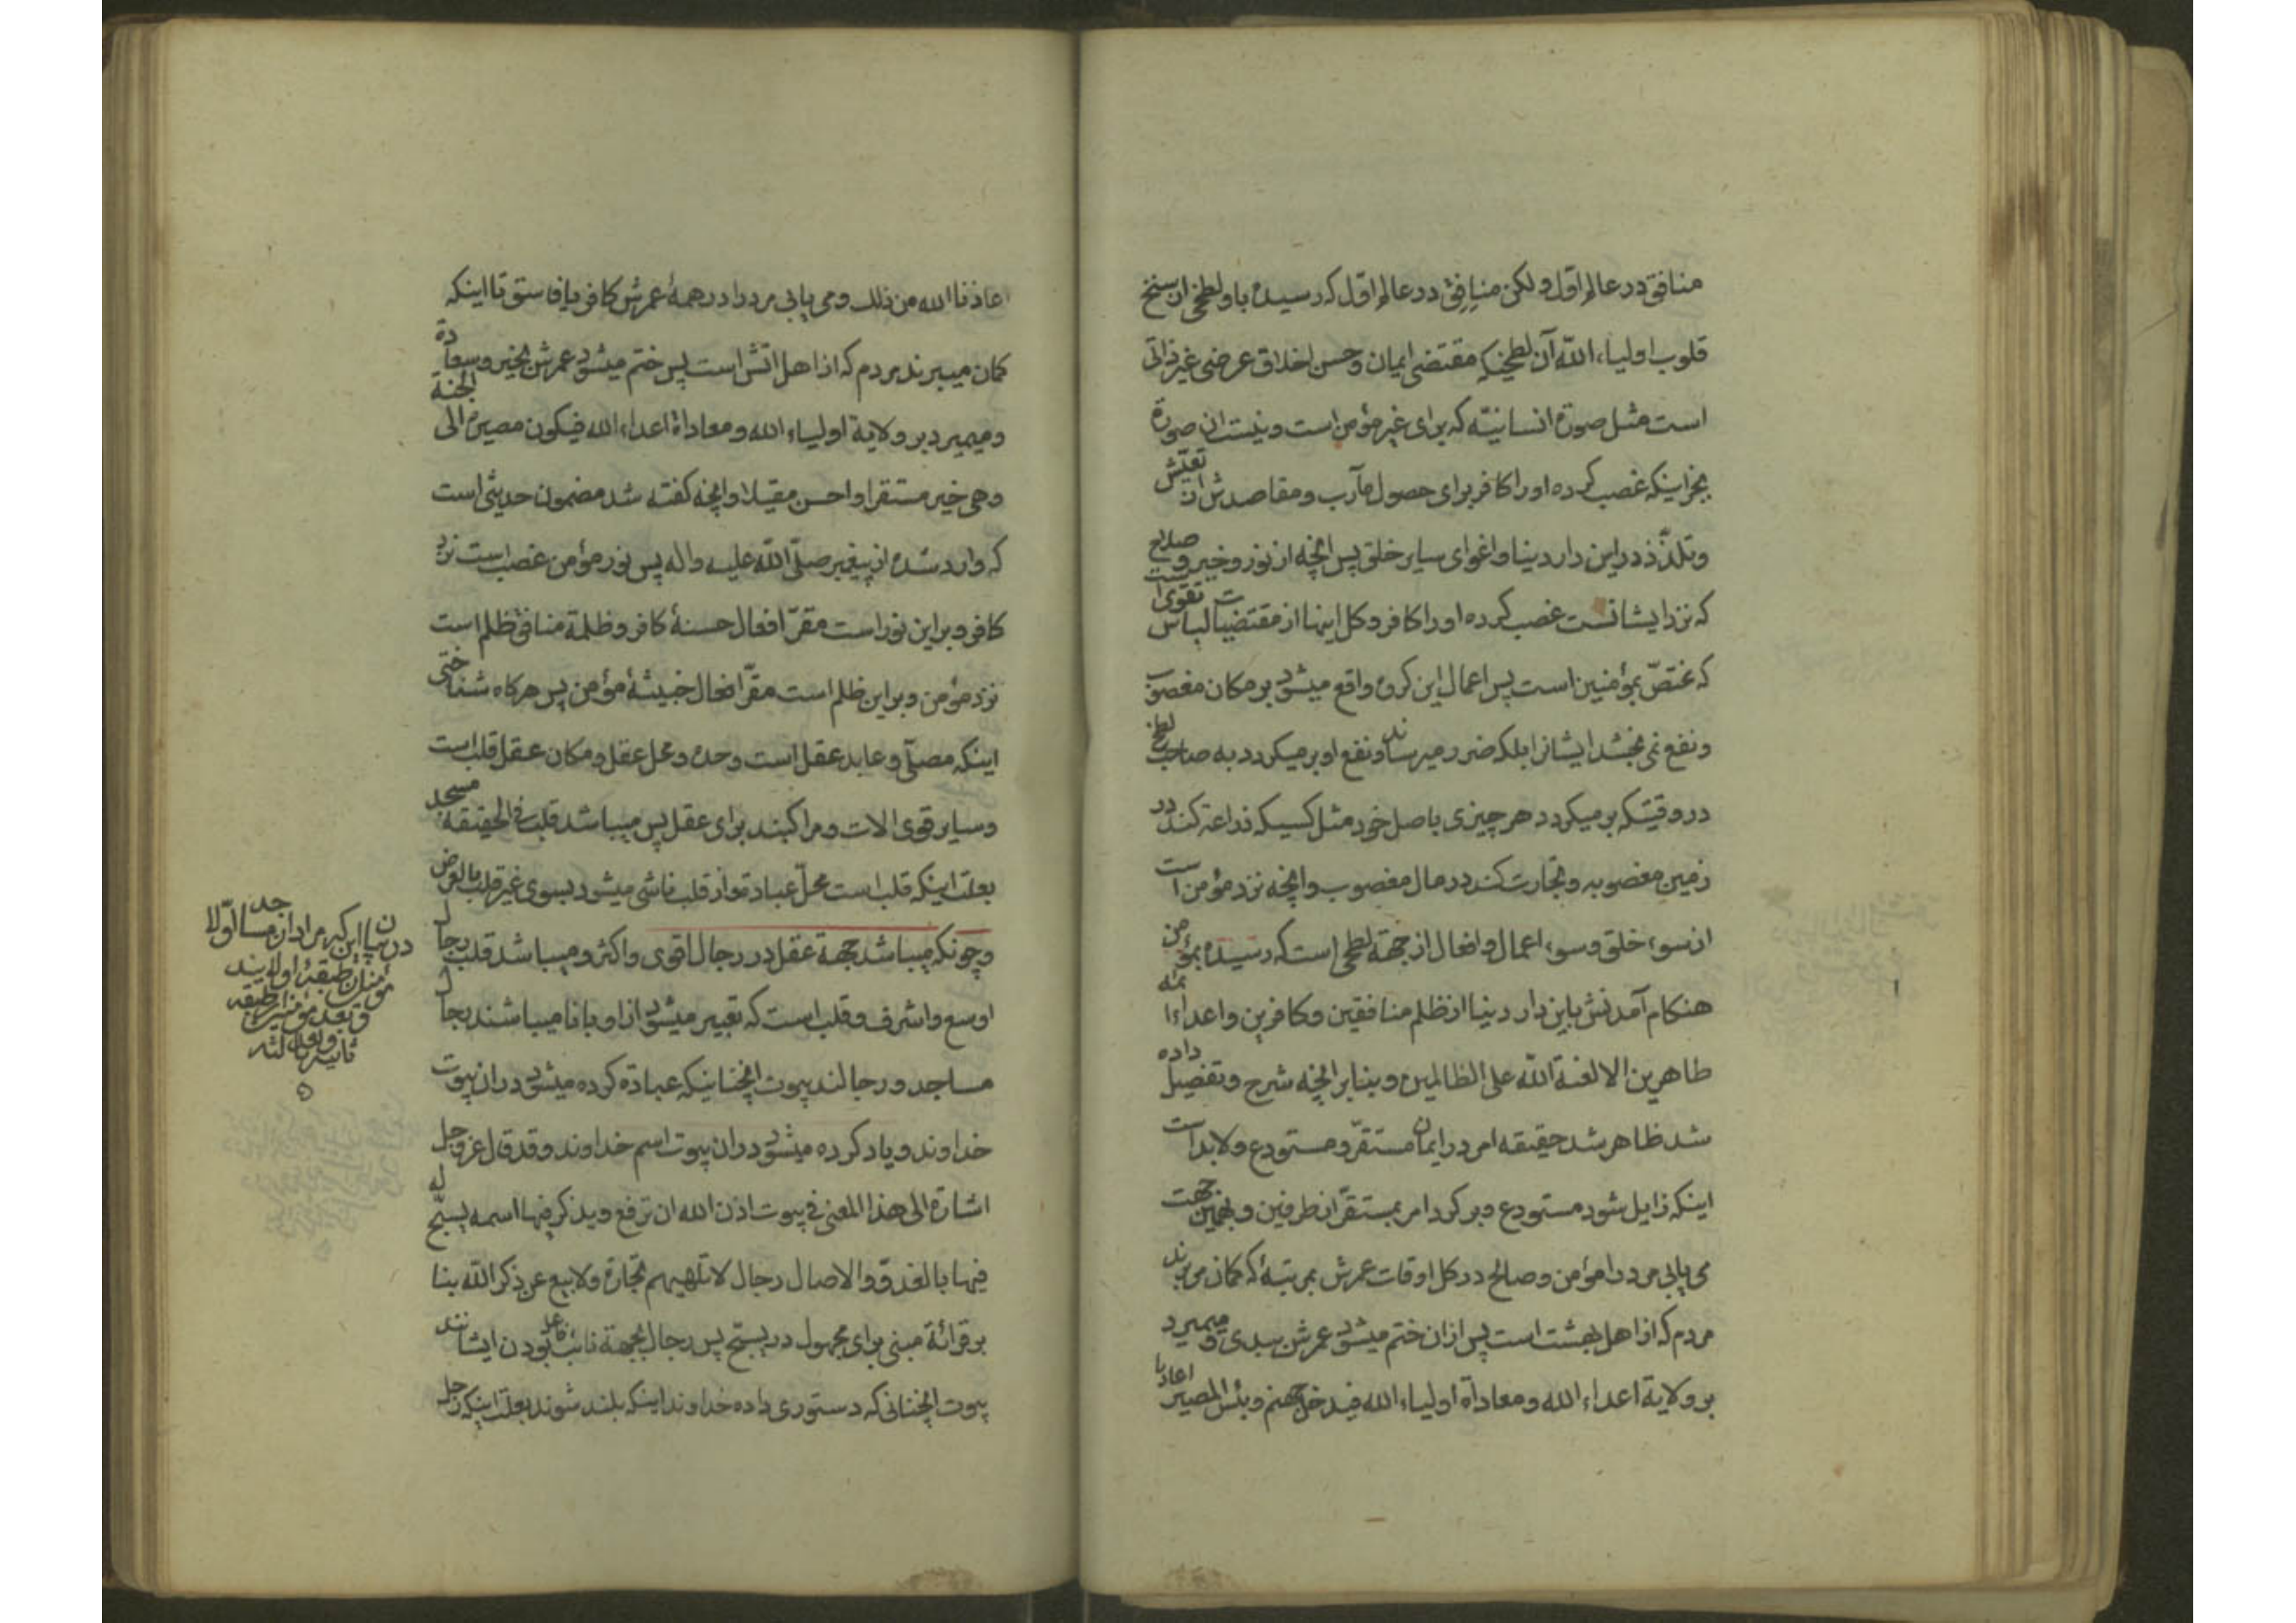 منافق در عالم اول ولکن منافق در عالم اول که رسیده باو لطخی از سنخ
قلوب اولیاء الله آن لطخیکه مقتضی ایمان وحسن اخلاق عرضی غیر ذاتی
است مثل صورة انسانیّه که برای غیر مؤمن است ونیست ان صورة
بجز اینکه غصب کرده او را کافر برای حصول مآرب ومقاصدش از تعیّش
وتلذّذ در این دار دنیا واغوای سایر خلق پس انچه از نور وخیر وصلاح
که نزد ایشانست غصب کرده او را کافر وکل اینها از مقتضیات لباس تقوی است
که مختصّ بمؤمنین است پس اعمال این کروه واقع میشود بر مکان مغصوب
ونفع نمی بخشد ایشانرا بلکه ضرر میرساند ونفع او بر میکردد به صاحب لطخ
در وقتیکه بر میکردد هر چیزی باصل خود مثل کسیکه زراعة کند در
زمین مغصوبه وتجارت کند در مال مغصوب وانچه نزد مؤمن است
از سوء خلق وسوء اعمال وافعال از جهة لطخی است که رسیده بمؤمن
هنکام آمدنش باین دار دنیا از ظلم منافقین وکافرین واعداء ائمه
طاهرین الا لعنة الله علی الظالمین وبنابر انچه شرح وتفصیل داده
شد ظاهر شد حقیقه امر در ایمان مستقرّ ومستودع ولابد است
اینکه زایل شود مستودع وبر کردد امر بمستقرّ از طرفین وبهمین جهت
می یابی مرد را مؤمن وصالح در کل اوقات عمرش بمرتبهٔ که کمان می برند
مردم که از اهل بهشت است پس از ان ختم میشود عمرش ببدی ومیمیرد
بر ولایة اعداء الله ومعاداة اولیاء الله فیدخل جهنم وبئس المصیر
اعاذنا الله من ذلك ومی یابی مرد را در همهٔ عمرش کافر یا فاسق تا اینکه
کمان میبرند مردم که از اهل اتش است پس ختم میشود عمرش بخیر وسعادة
ومیمیرد بر ولایة اولیاء الله ومعاداة اعداء الله فیکون مصیره الی الجنة
وهی خیر مستقرا واحسن مقیلا وانچه کفته شد مضمون حدیثی است
که وارد شده از پیغمبر صلّی الله علیه واله پس نور مؤمن غصب است نزد
کافر وبر این نور است مقرّ افعال حسنهٔ کافر وظلمة منافق ظلم است
نزد مؤمن وبر این ظلم است مقرّ افعال خبیثهٔ مؤمن پس هرکاه شناختی
اینکه مصلّی وعابد عقل است وحده ومحل عقل ومکان عقل قلب است
وسایر قوی الات ومراکبند برای عقل پس میباشد قلب فی الحقیقه مسجد
بعلت اینکه قلب است محلّ عبادة واز قلب ناشی میشود بسوی غیر قلب بالعرض
وچونکه میباشد جهة عقل در رجال اقوی واکثر ومیباشد قلب رجال
اوسع واشرف وقلب است که تعبیر میشود از او بانا میباشند رجال
مساجد ورجالند بیوت انچنانیکه عبادة کرده میشود در ان بیوت
خداوند ویاد کرده میشود در ان بیوت اسم خداوند وقد قال عز وجل
اشارة الی هذا المعنی فی بیوت اذن الله ان ترفع ویذکر فیها اسمه یسبّح له
فیها بالغدوّ والاصال رجال لا تلهیهم تجارة ولا بیع عن ذکر الله بنا
بر قرائة مبنی برای مجهول در یسبّح پس رجال بجهة نائب فاعل بودن ایشانند
بیوت انچنانی که دستوری داده خداوند اینکه بلند شوند بعلت اینکه رجل
در بیان این که مراد از مساجد اولا
مؤمنان طبقهٔ اولایند
وبعد مؤمنین طبقه
ثانیه وبعد ثالثه